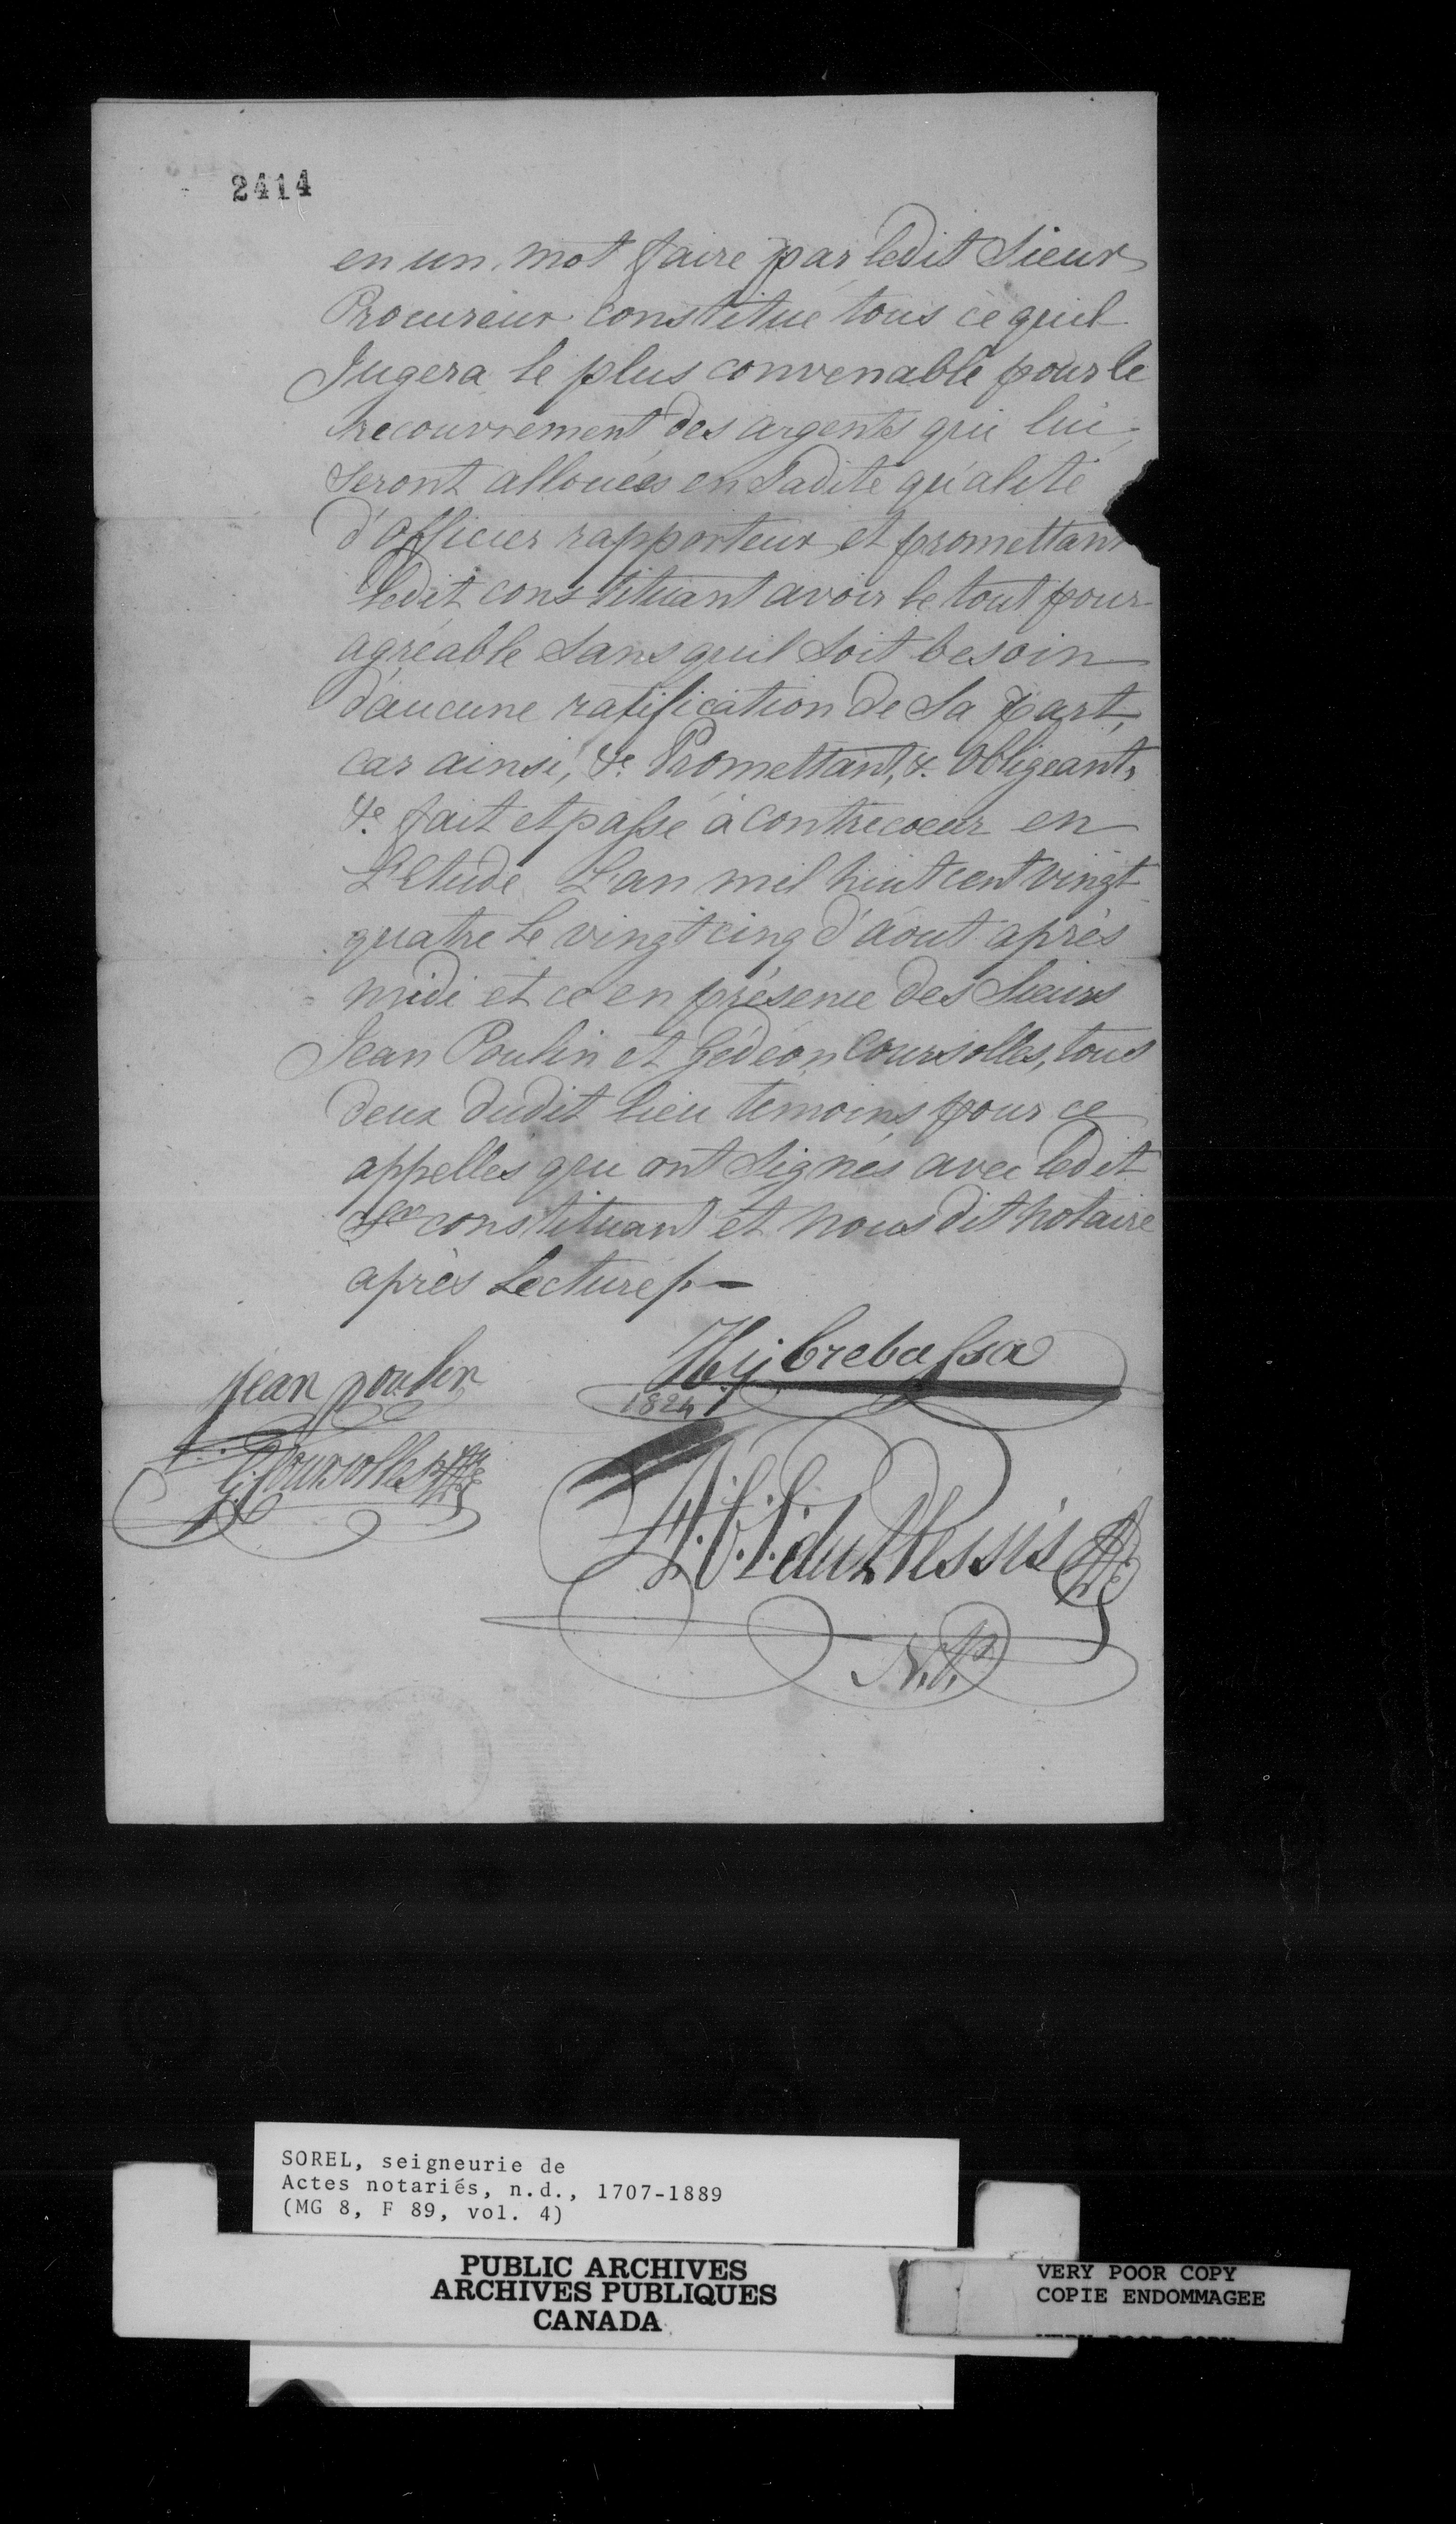 2414
en un mot faire par ledit Sieur
Procureur constitué tous ce quil
Jugera le plus convenable pour le
recouvrement des argents qui lui
Seront allouées en Sadite qualité
d'officier rapporteur, et promettant
ledit constituant avoir le tout pour
agréable Sans quil Soit besoin
d'aucune ratification de Sa part,
car ainsi, &c. Promettant, &. Obligeant,
&c. fait et passé à Contrecoeur en
L'Etude L'an mil huit cent vingt
quatre Le vingt cinq d'août après
midi et ce en présence des Sieurs
Jean Poulin et Gédéon Coursolles, tous
deux dudit lieu temoins pour ce
appellés qui ont Signés avec ledit
Sr constituant et nous dit notaire
après Lecture /. —
Jean poulin
Hy: Crebassa
1824
G: Coursolles
duPlessis
N.P.
SOREL, seigneurie de
Actes notariés, n.d., 1707-1889
(MG 8, F 89, vol. 4)
PUBLIC ARCHIVES
ARCHIVES PUBLIQUES
CANADA
VERY POOR COPY
COPIE ENDOMMAGEE
VERY POOR COPY